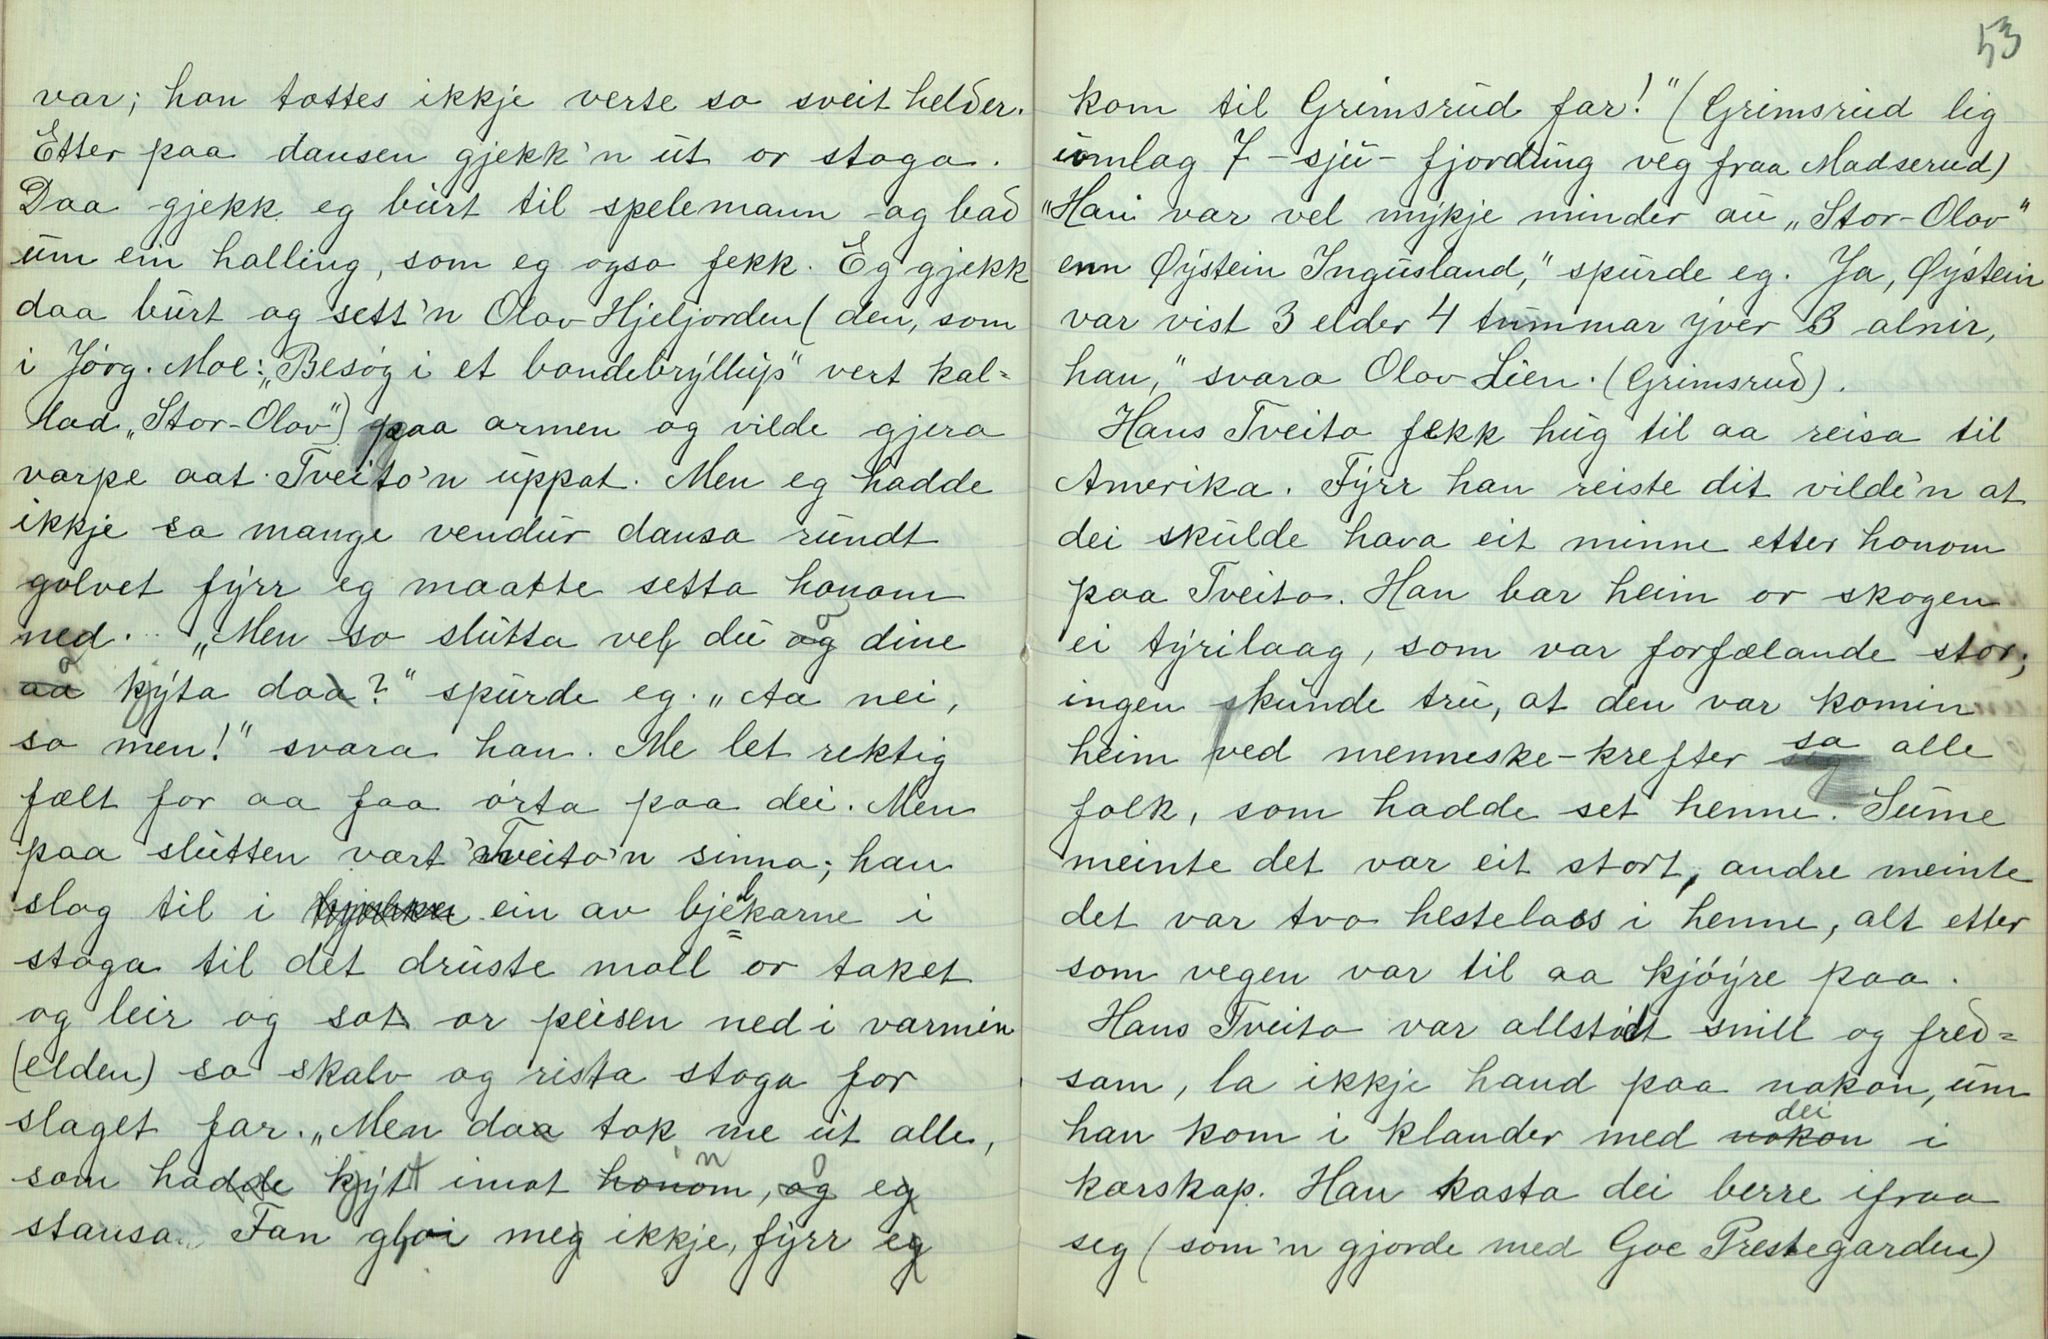 var; han tottes ikkje verte so sveit helder.
Etter paa dansen gjekk'n ut or stoga.
Daa gjekk eg burt til spelemann og bad
um ein halling, som eg ogso fekk. Eg gjekk
daa burt og sett'n Olav Hjeljorden (den, som
i Jörg. Moe: „Besög i et bondebryllup" vert kal-
lad „Stor-Olav") paa armen og vilde gjera
varpe aat Tveito'n uppat. Men eg hadde
ikkje so mange vendur dansa rundt
golvet fyrr eg maatte setta honom
ned. „Men so slutta vel du og dine
aa kyta daa?" spurde eg. „Aa nei,
so men!" svara han. Me let rektig
fælt for aa faa örta paa dei. Men
paa slutten vart Tveito'n sinna; han
slog til i bjelken ein av bjelkarne i
stoga til det druste moll or taket
og leir og sot or peisen ned i varmin
(elden) so skalv og rista stoga for
slaget far. „Men daa tok me ut alle,
som hadde kytt imot honom, og eg
stansa. Fan gloi meg ikkje, fyrr eg
53
kom til Grimsrud far!" (Grimsrud lig
iomlag 7 - sju - fjordung veg fraa Madserud)
"Han var vel mykje minder au „Stor-Olav"
enn Øystein Ingusland," spurde eg. Ja, Øystein
var vist 3 elder 4 tummar yver 3 alnir,
han," svara Olav Lien. (Grimsrud).
Hans Tveito fekk hug til aa reisa til
Amerika. Fyrr han reiste dit vilde'n at
dei skulde hava eit minne etter honom
paa Tveito. Han bar heim or skogen
ei tyrilaag, som var forfælande stor;
ingen skunde tru, at den var komin
heim ved menneske-krefter sa alle
folk, som hadde set henne. Sume
meinte det var eit stort, andre meinte
det var tvo hestelass i henne, alt etter
som vegen var til aa kjöyre paa.
Hans Tveito var allstidt snill og fred-
sam, la ikkje hand paa nokon, um
han kom i klander med nokon dei i
karskap. Han kasta dei berre ifraa
seg (som'n gjorde med Goe Prestegarden)